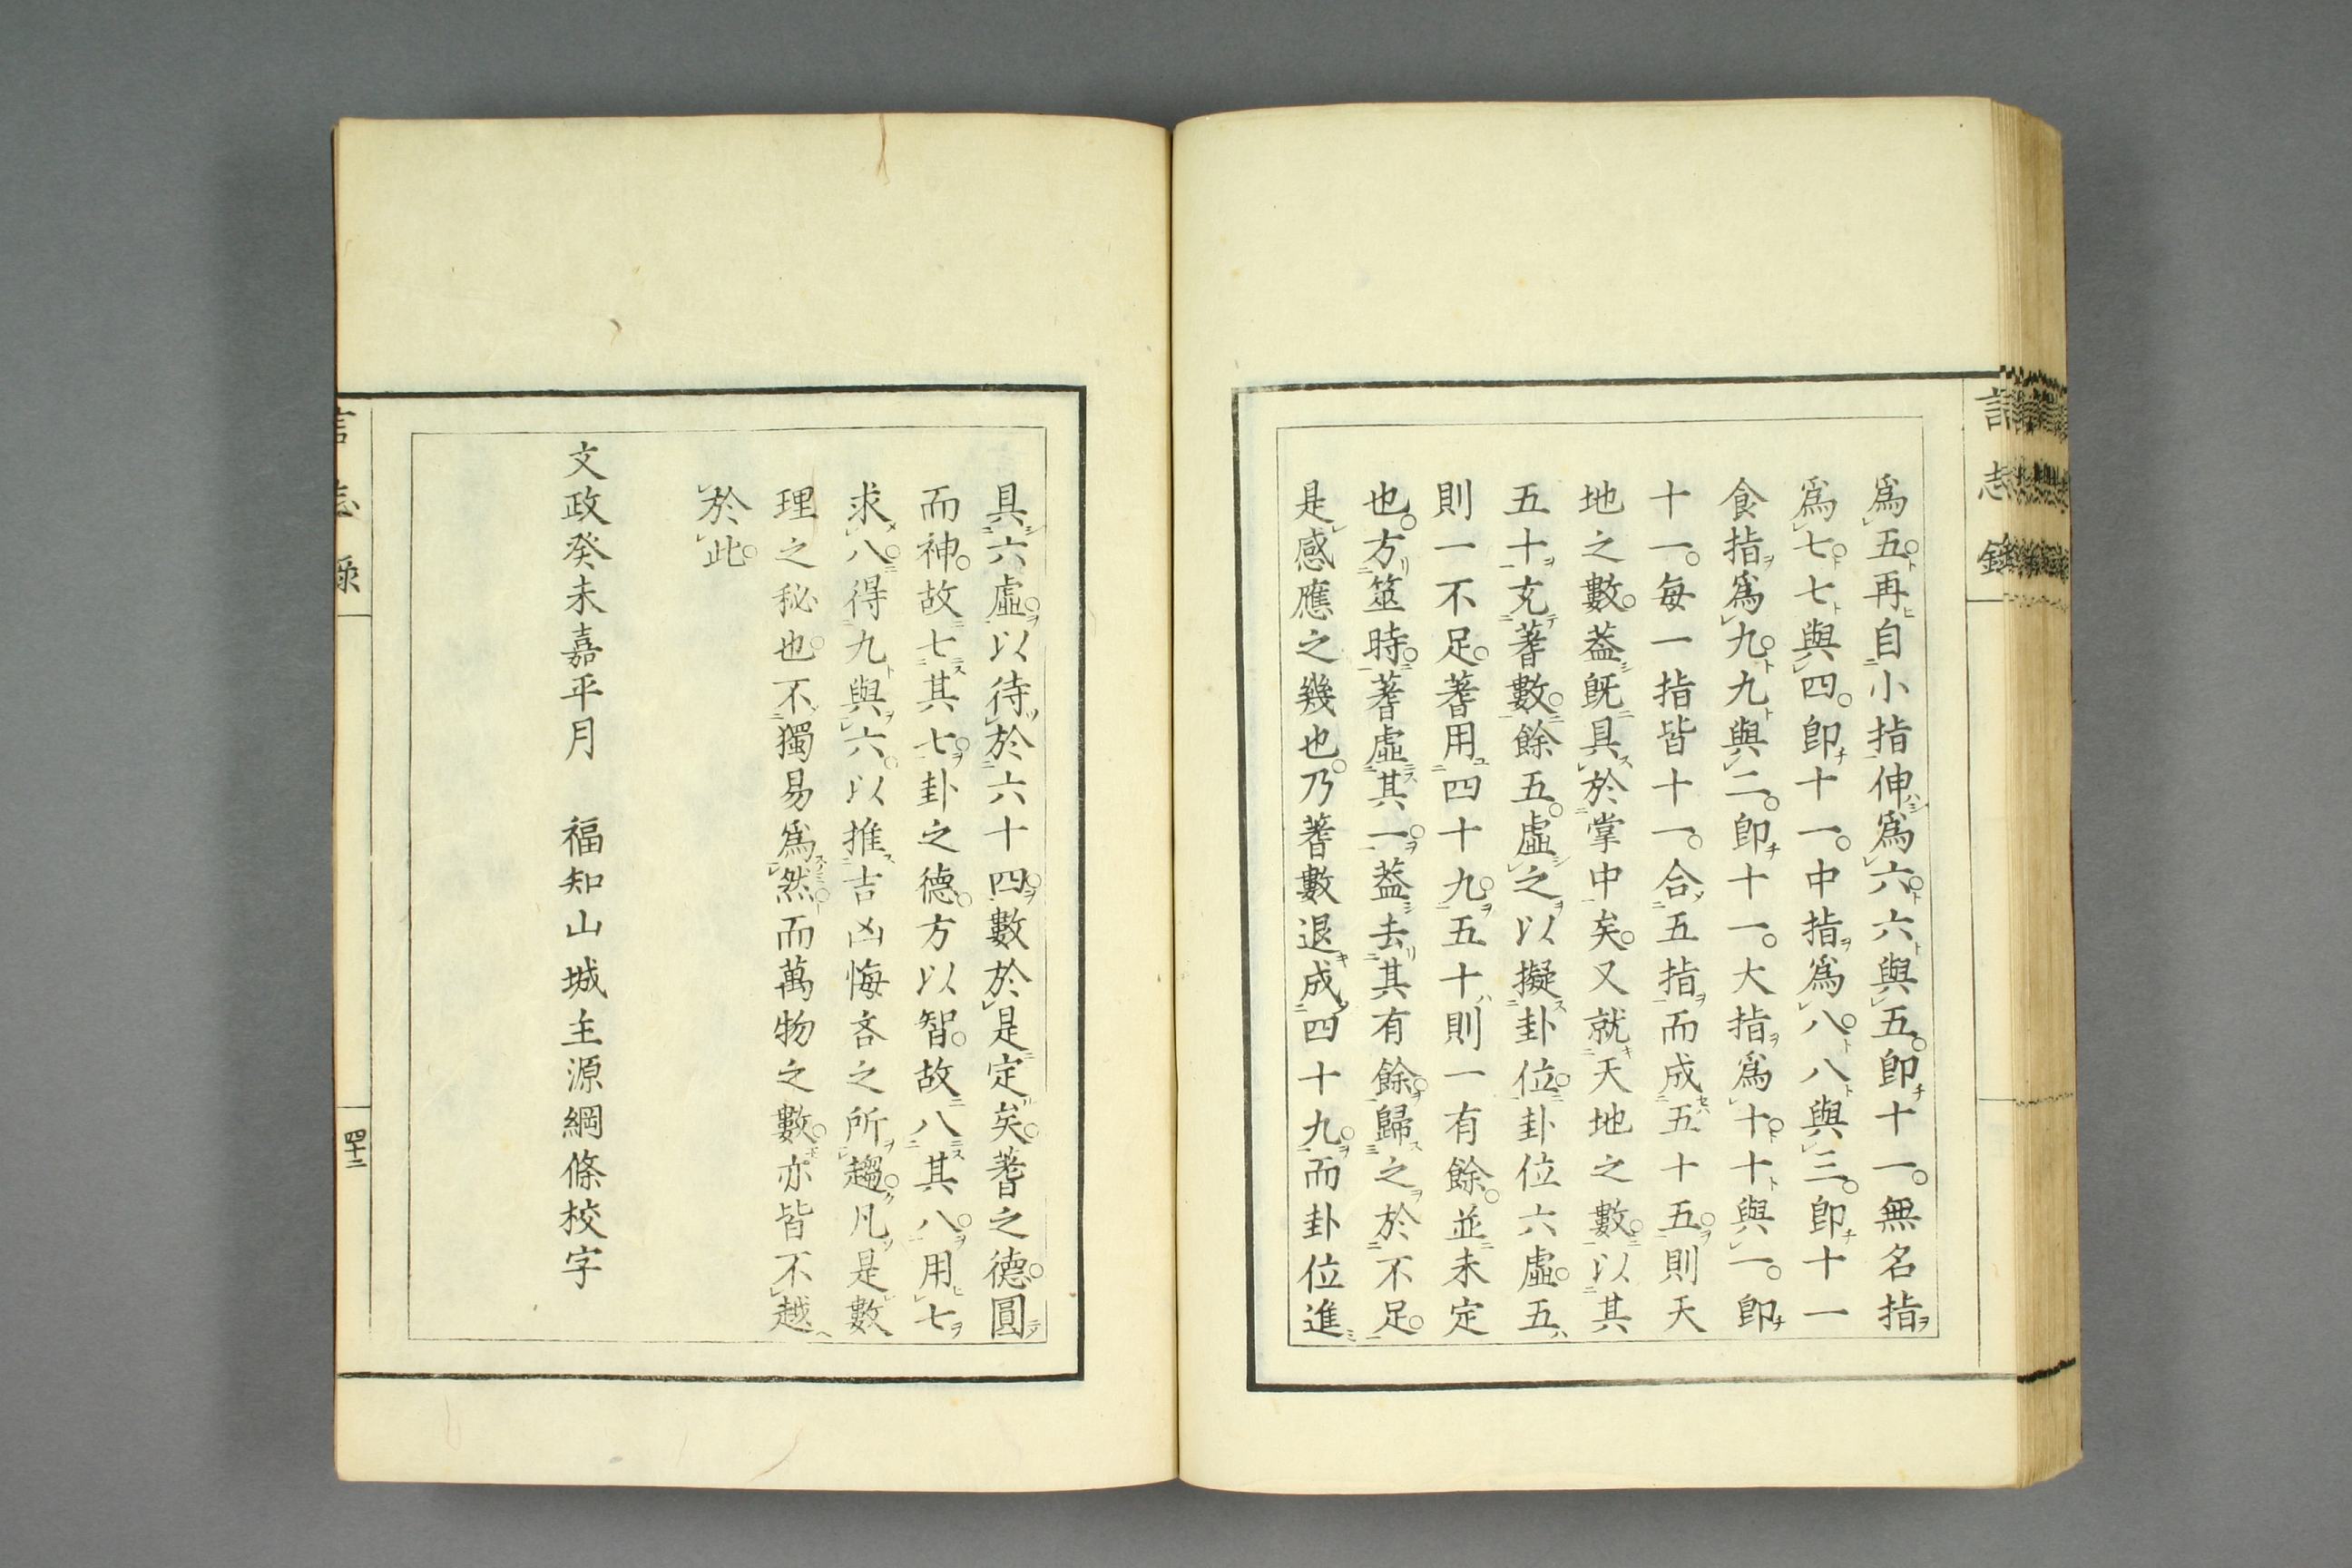 言志錄
爲五再自小指伸爲六六與五卽十一無名指
爲七七與四卽十一中指爲八八與三卽十一
食指爲九九與二卽十一大指爲十十與一卽
十一每一指皆十一合五指而成五十五則天
地之數葢既具於掌中矣又就天地之數以其
五十充蓍數餘五虛之以擬卦位卦位六虛五
則一不足蓍用四十九五十則一有餘並未定
也方筮時蓍虛其一葢去其有餘歸之於不足
是感應之幾也乃蓍數退成四十九而卦位進
具六虛以待於六十四數於是定矣蓍之德圓
而神故七其七卦之德方以智故八其八用七
求八得九與六以推吉凶悔吝之所趨凡是數
理之秘也不獨易爲然而萬物之數亦皆不越
於此
文政癸未嘉平月　福知山城主源綱條校字
言志錄
四十二